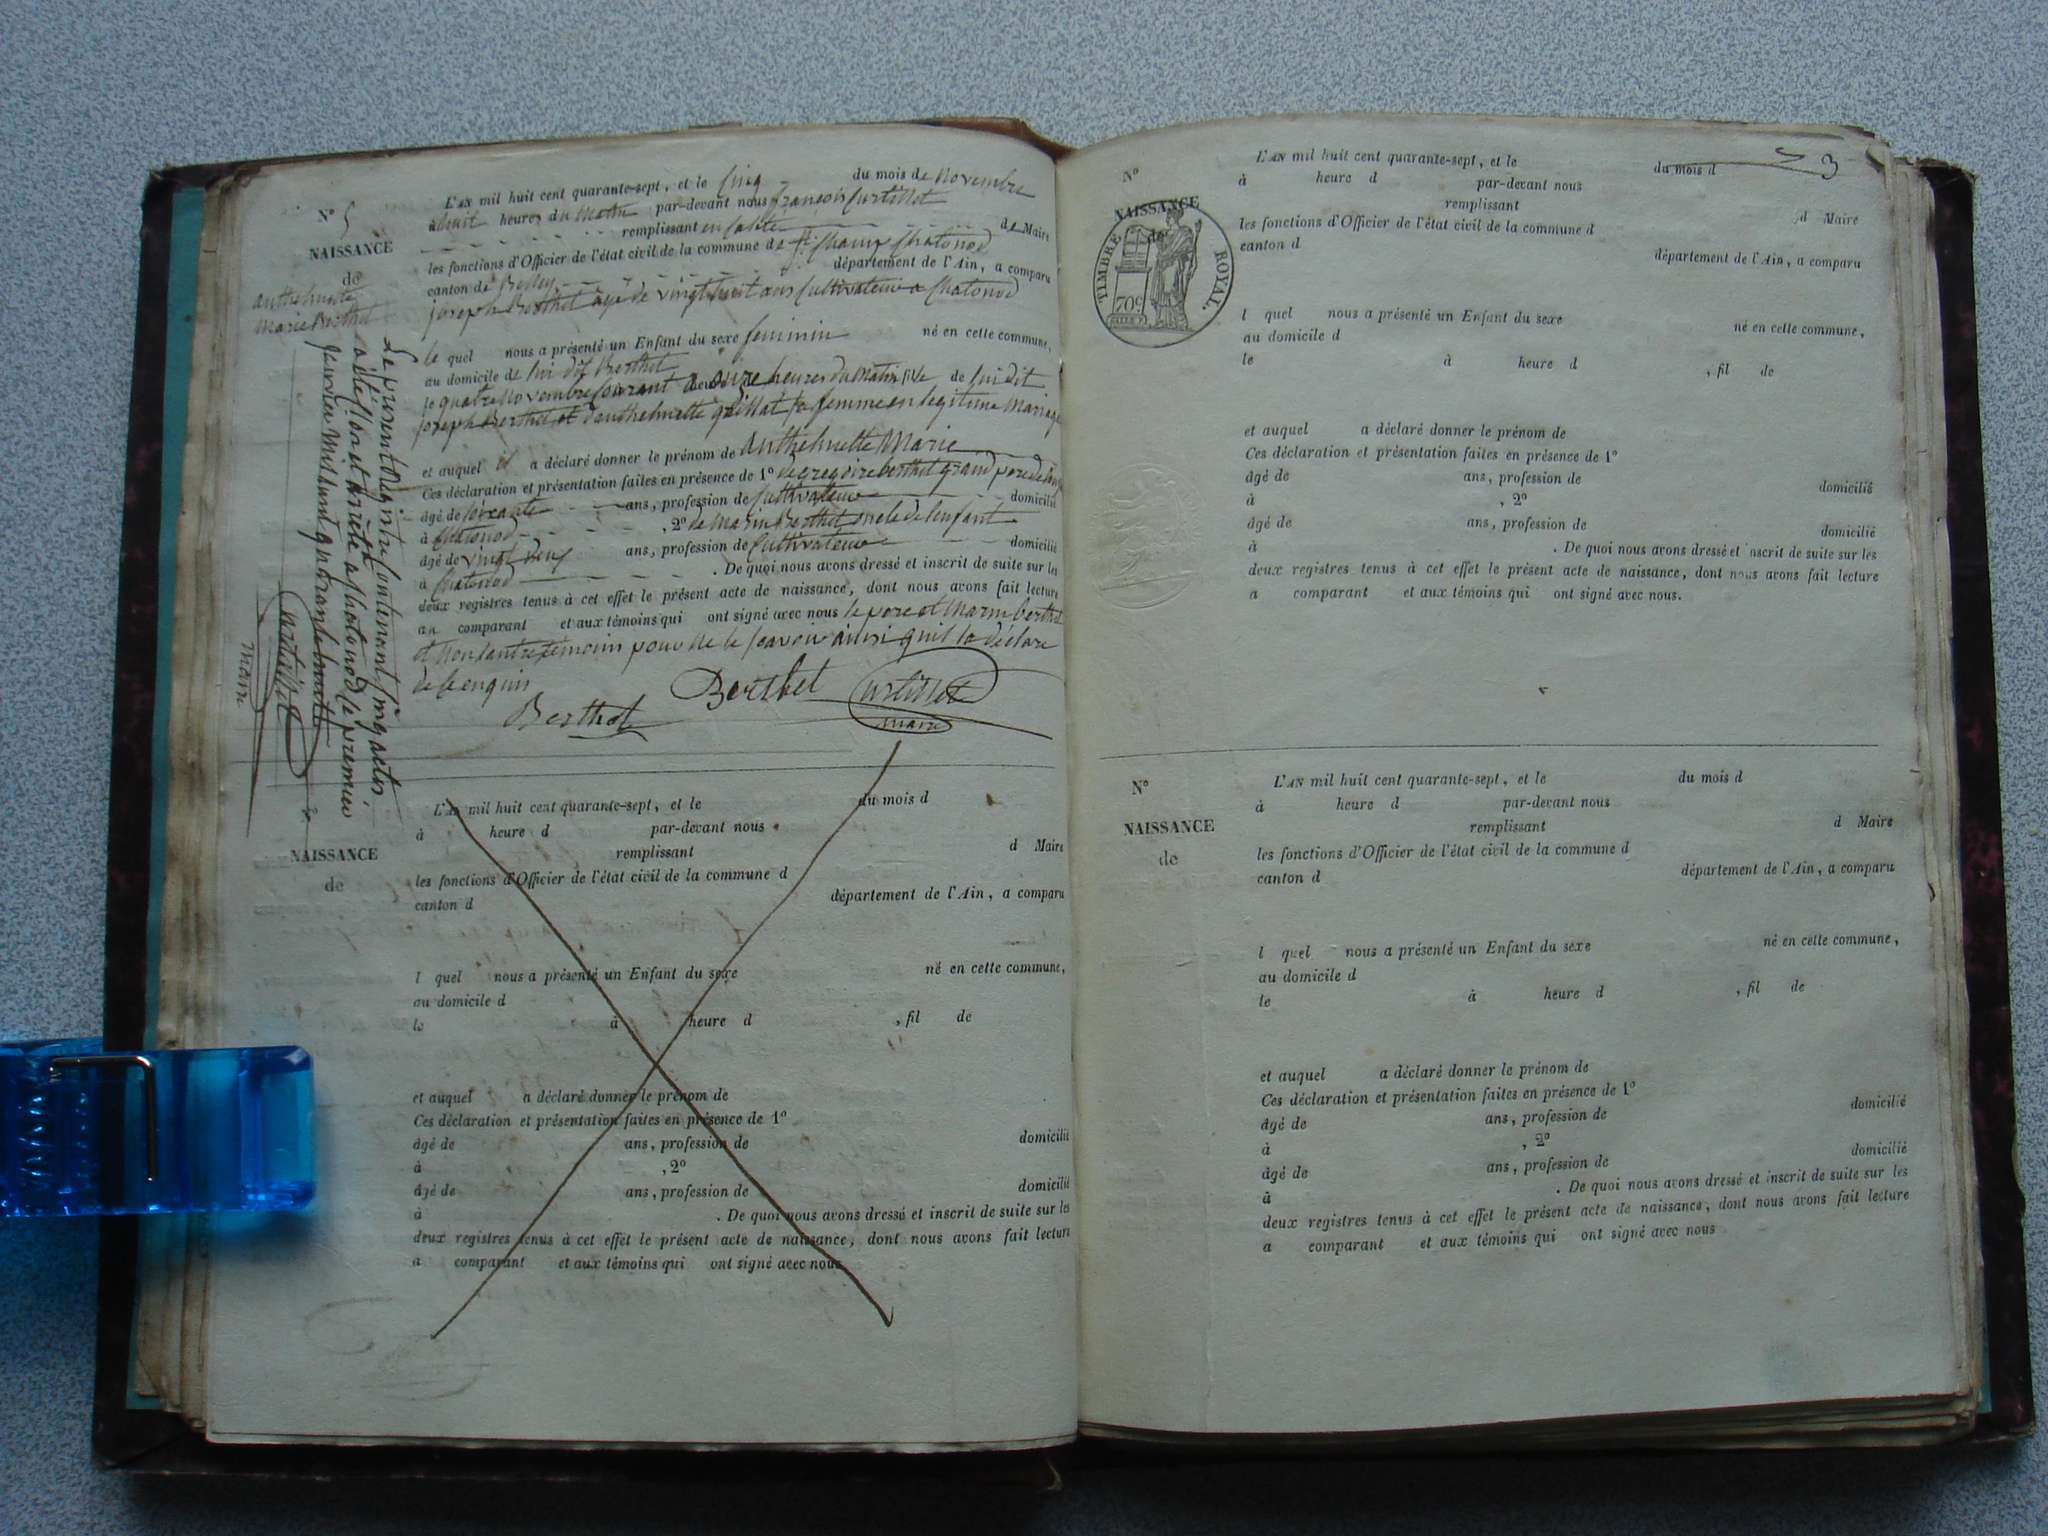 N° 5
NAISSANCE
de
anthelmette
Marie Berthet
L'AN mil huit cent quarante-sept, et le Cinq du mois de Novembre
à huit heures du Matin par-devant nous françois Curtillet
remplissant en Calité de Maire
les fonctions d'Officier de l'état civil de la commune de St. Champ Chatonod
canton de Belley département de l'Ain, a comparu
joseph Berthet agé de vingt huit ans Cultivateur a Chatonod
le quel nous a présenté un Enfant du sexe feminin né en cette commune,
au domicile de lui dit Berthet
le quatre Novembre Courant à onze heures du Matin fille de lui dit
joseph Berthet et d'anthelmette grillat sa femme en legitime Mariage
et auquel il a déclaré donner le prénom de anthelmette Marie
Ces déclaration et présentation faites en présence de 1° de gregoire berthet grand pere de
âgé de soixante ans, profession de Cultivateur domicilié
à Chatonod , 2° de Marin Berthet oncle de lenfant
âgé de vingt deux ans, profession de Cultivateur domicilié
à Chatonod . De quoi nous avons dressé et inscrit de suite sur les
deux registres tenus à cet effet le présent acte de naissance, dont nous avons fait lecture
au comparant et aux témoins qui ont signé avec nous le pere et Marin berthet
et non lautre témoin pour ne le savoir ainsi quil la déclaré
de ce enquis
Berthet Berthet Curtillet
maire
Le présent Registre Contenant Cinq actes
a été Clos et arrêté a Chatonod le premier
janvier Mil huit quarante huit
Curtillet
Maire
N°
NAISSANCE
de
L'AN mil huit cent quarante-sept, et le du mois d
à heure d par-devant nous
remplissant d Maire
les fonctions d'Officier de l'état civil de la commune d
canton d département de l'Ain, a comparu
l quel nous a présenté un Enfant du sexe né en cette commune,
au domicile d
le à heure d , fil de
et auquel a déclaré donner le prénom de
Ces déclaration et présentation faites en présence de 1°
âgé de ans, profession de domicilié
à , 2°
âgé de ans, profession de domicilié
à . De quoi nous avons dressé et inscrit de suite sur les
deux registres tenus à cet effet le présent acte de naissance, dont nous avons fait lecture
a comparant et aux témoins qui ont signé avec nous
3
N°
NAISSANCE
de
TIMBRE ROYAL.
70c
L'AN mil huit cent quarante-sept, et le du mois d
à heure d par-devant nous
remplissant d Maire
les fonctions d'Officier de l'état civil de la commune d
canton d département de l'Ain, a comparu
l quel nous a présenté un Enfant du sexe né en cette commune,
au domicile d
le à heure d , fil de
et auquel a déclaré donner le prénom de
Ces déclaration et présentation faites en présence de 1°
âgé de ans, profession de domicilié
à , 2°
âgé de ans, profession de domicilié
à . De quoi nous avons dressé et inscrit de suite sur les
deux registres tenus à cet effet le présent acte de naissance, dont nous avons fait lecture
a comparant et aux témoins qui ont signé avec nous.
N°
NAISSANCE
de
L'AN mil huit cent quarante-sept, et le du mois d
à heure d par-devant nous
remplissant d Maire
les fonctions d'Officier de l'état civil de la commune d
canton d département de l'Ain, a comparu
l quel nous a présenté un Enfant du sexe né en cette commune,
au domicile d
le à heure d , fil de
et auquel a déclaré donner le prénom de
Ces déclaration et présentation faites en présence de 1°
âgé de ans, profession de domicilié
à , 2°
âgé de ans, profession de domicilié
à . De quoi nous avons dressé et inscrit de suite sur les
deux registres tenus à cet effet le présent acte de naissance, dont nous avons fait lecture
a comparant et aux témoins qui ont signé avec nous